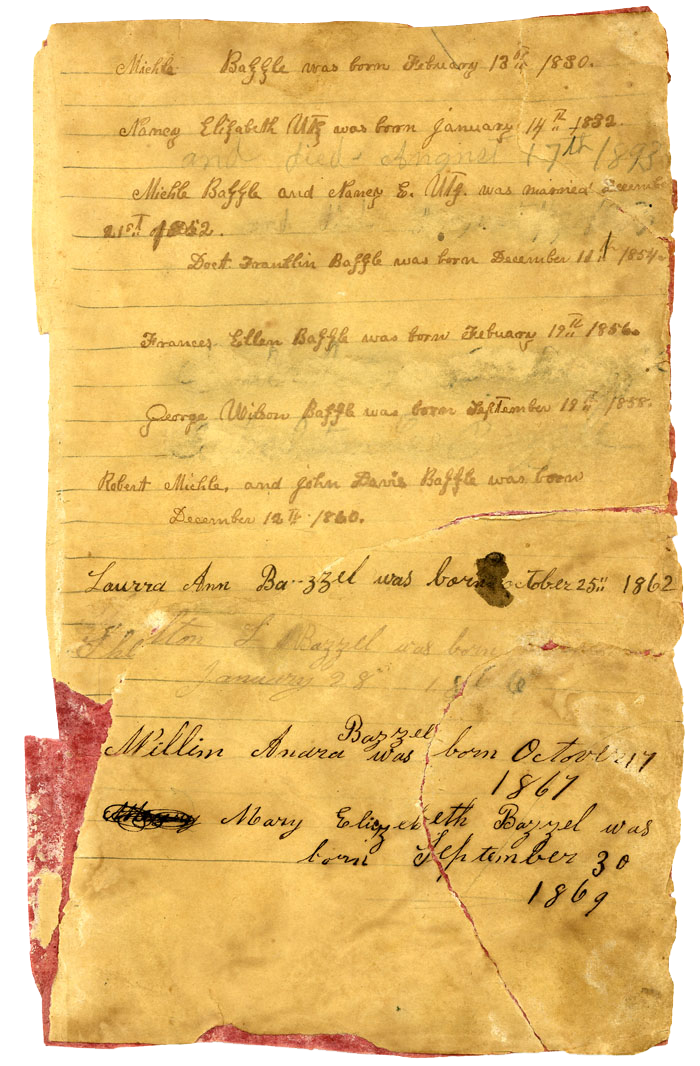 Michle Baffle was born Febuary 13th 1830.
Nancy Elifabeth Utz was born January 14th 1832.
and died August 17th 1893
Michle Baffle and Nancy E. Utz. was married December
21st 1852.
Doct. Franklin Baffle was born December 11th 1854
Frances. Ellen Baffle was born Febuary 19th 1856
George Wilson Baffle was born September 19th 1858.
Robert Michle, and John Davis Baffle was born
December 12th 1860.
Laurra Ann Bazzel was born october 25" 1862
L Bazzel was born
January 28 186
Willim Andra Bazzel was born Octover 17
1867
Mary Elizebeth Bazzel was
born September 30
1869